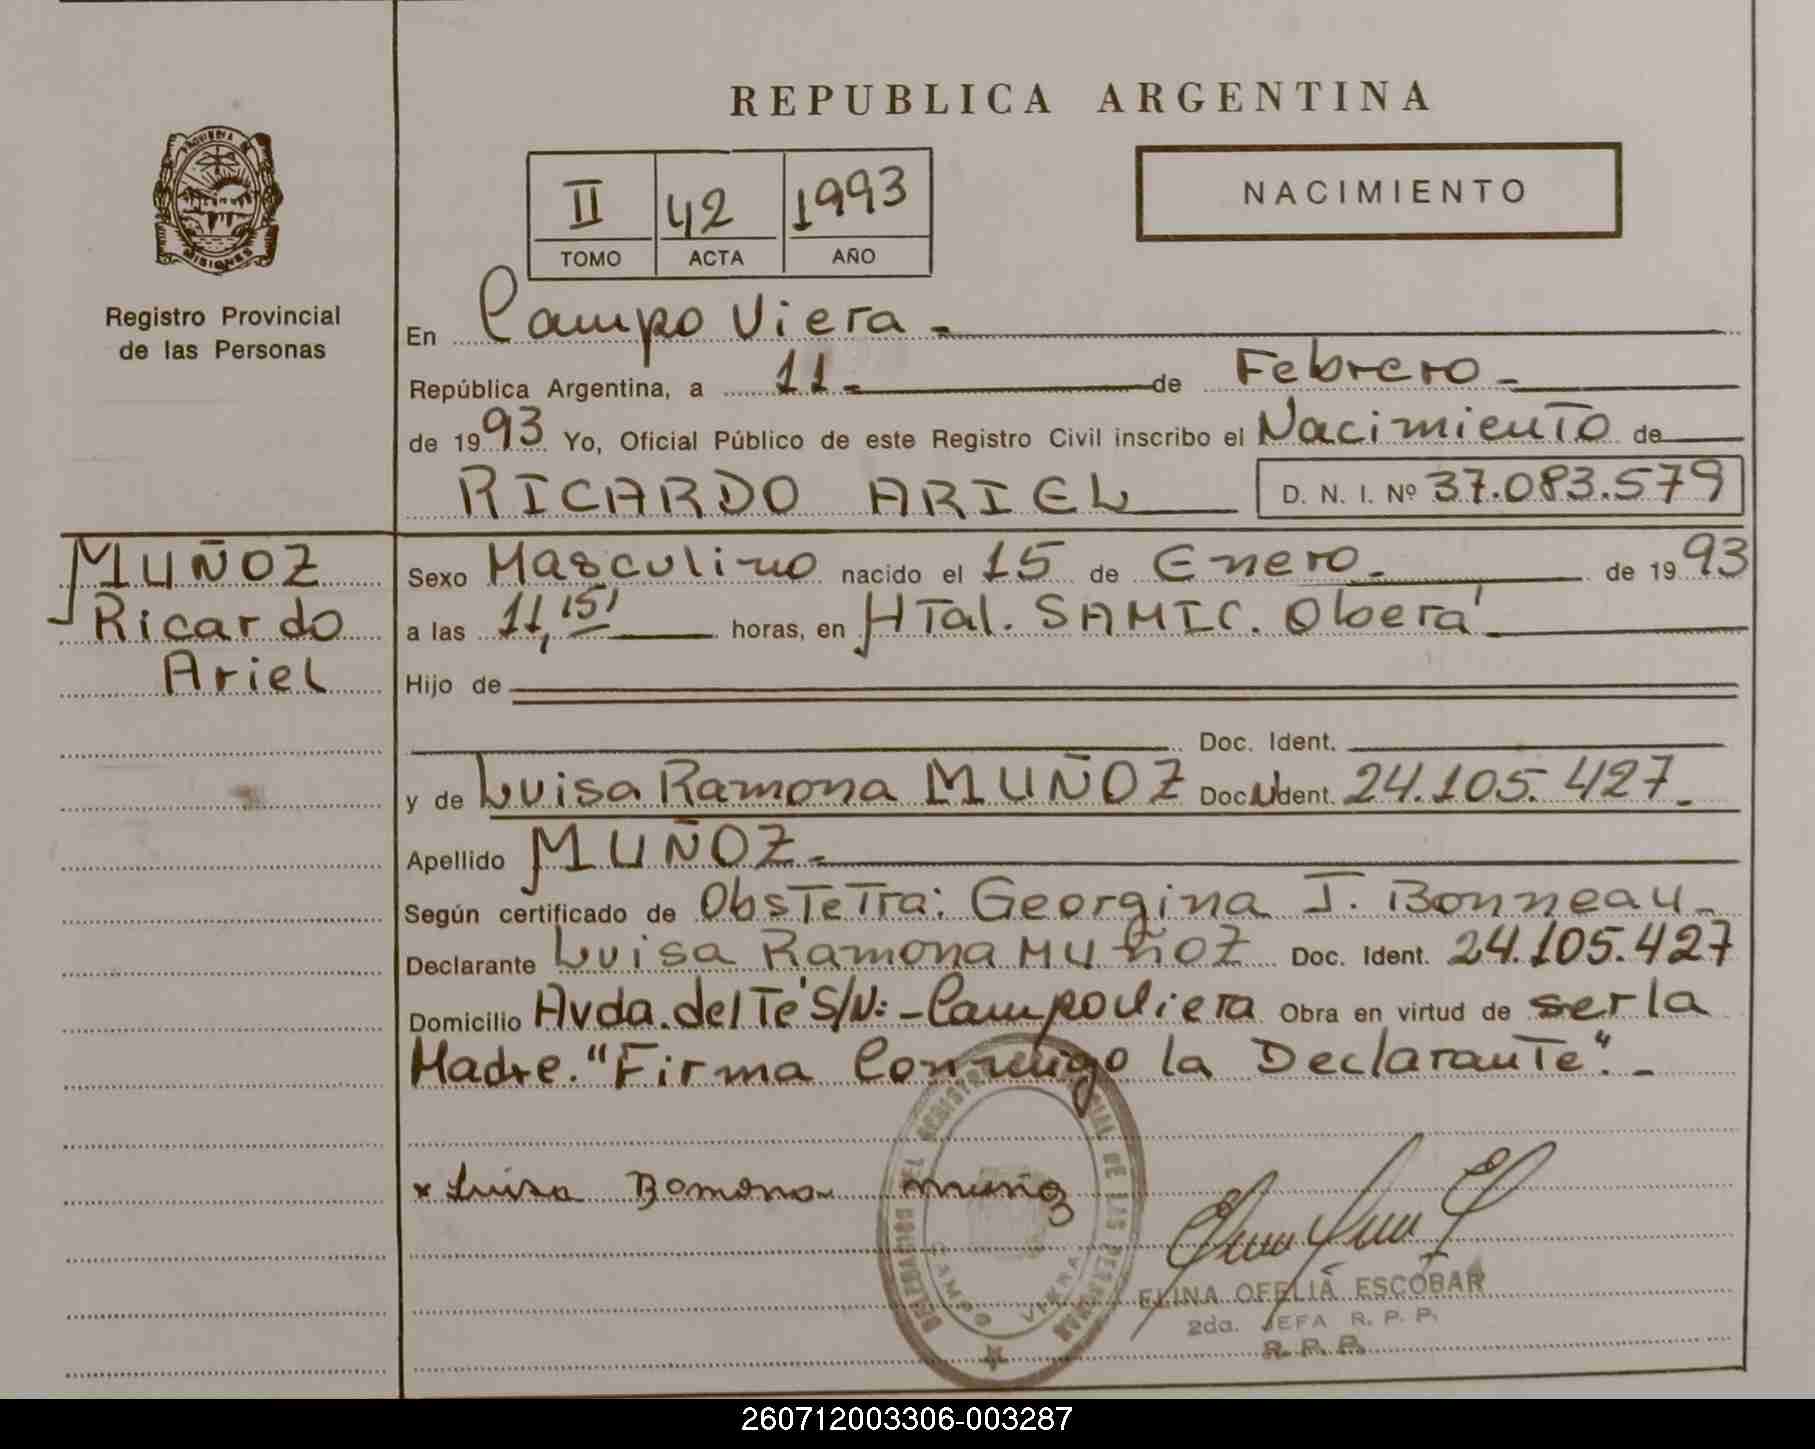 REPUBLICA ARGENTINA
NACIMIENTO
II 42 1993
TOMO ACTA AÑO
PROVINCIA DE
MISIONES
Registro Provincial
de las Personas
En Campo Viera -
República Argentina, a 11 - de Febrero -
de 1993 Yo, Oficial Público de este Registro Civil inscribo el Nacimiento de
RICARDO ARIEL D. N. I. Nº 37.083.579
MUÑOZ
Ricardo
Ariel
Sexo Masculino nacido el 15 de Enero - de 1993
a las 11,15' horas, en HTal. SAMIC. Oberá -
Hijo de
Doc. Ident.
y de Luisa Ramona MUÑOZ Doc. Ident. 24.105.427 -
Apellido MUÑOZ -
Según certificado de Obstetra: Georgina J. Bonneau -
Declarante Luisa Ramona MUÑOZ Doc. Ident. 24.105.427
Domicilio Avda. del Té S/N: - Campo Viera Obra en virtud de ser la
Madre. "Firma Conmigo la Declarante". -
x Luisa Romona muñoz
DELEGACION DEL REGISTRO PROVINCIAL DE LAS PERSONAS
CAMPO VIERA
ELINA OFELIA ESCOBAR
2da. JEFA R. P. P.
R. P. P.
260712003306-003287